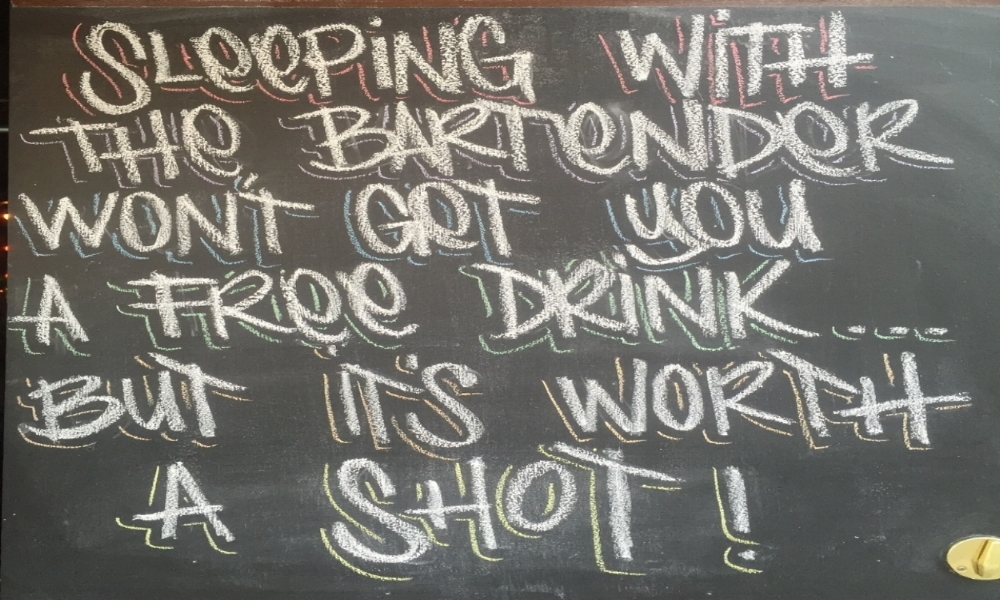 SLeePiNG WiTH
THe BARTeNDeR
WON'T GeT yOU
A FRee DRiNK....
BUT IT'S WORTH
A SHOT!